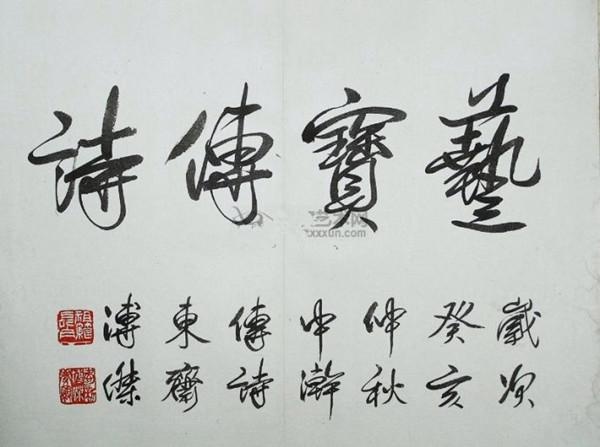 藝寶傳詩
歲次
癸亥
仲秋
中澣
傳詩
東齋
溥傑
xxxun.com